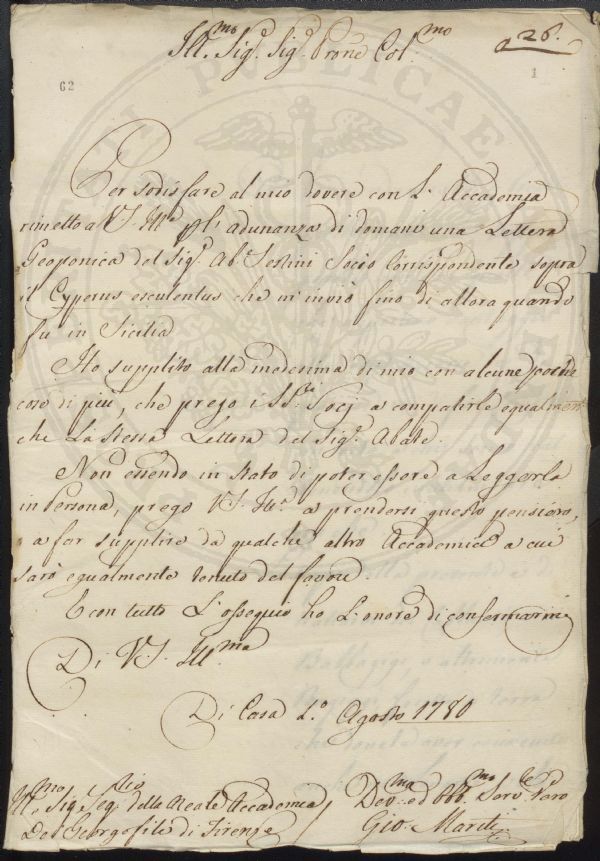 Ill.mo Sig.e Sig.e Prone Col.mo
26.
62
1
Per sodisfare al mio dovere con L'Accademia
rimetto a V.S. Ill.ma p l'adunanza di domani una Lettera
Geoponica del Sig.e Ab.e Sestini Socio Corrispondente sopra
il Cyperus esculentus che m'inviò fino di allora quando
fu in Sicilia
Ho supplito alla medesima di mio con alcune poche
cose di più, che prego i SS.ri Socj a compatirle egualmente
che La stessa Lettera del Sig.e Abate.
Non essendo in stato di poter essere a Leggerla
in Persona, prego V.S. Ill.a a prendersi questo pensiero,
o a far supplire da qualche altro Accademico a cui
sarò egualmente tenuto del favore
E con tutto L'ossequio ho L'onore di confermarmi
Di V.S. Ill.ma
Di Casa L.o Agosto 1780
Ill.mo Sig. Seg.rio della Reale Accademia
De Georgofili di Firenze
Dev.ma ed Obb.mo Serv.re Vero
Gio. Mariti